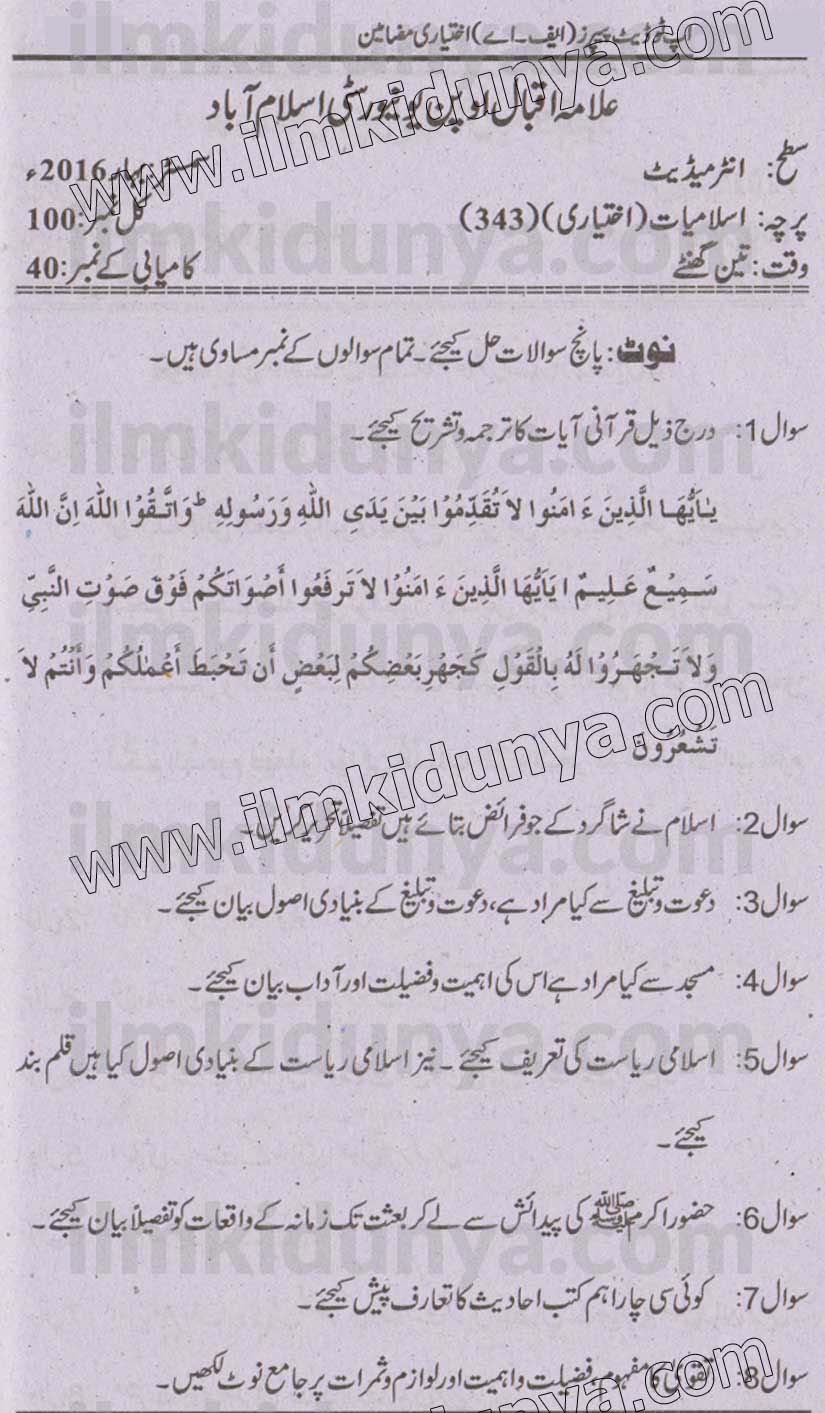 اپ ٹو ڈیٹ پیپرز (ایف۔اے) اختیاری مضامین
علامہ اقبال اوپن یونیورسٹی اسلام آباد
سطح: انٹرمیڈیٹ سمسٹر بہار 2016ء
پرچہ: اسلامیات (اختیاری) (343) کل نمبر: 100
وقت: تین گھنٹے کامیابی کے نمبر: 40
نوٹ: پانچ سوالات حل کیجئے۔ تمام سوالوں کے نمبر مساوی ہیں۔
سوال 1: درج ذیل قرآنی آیات کا ترجمہ و تشریح کیجئے۔
يٰاَيُّهَا الَّذِينَ ءَامَنُوا لاَ تُقَدِّمُوْا بَيْنَ يَدَىِ اللّٰهِ وَرَسُولِهِ ط وَاتَّقُوْا اللّٰهَ اِنَّ اللّٰهَ
سَمِيْعٌ عَلِيمٌ ا يَاَيُّهَا الَّذِينَ ءَامَنُوْا لاَ تَرفَعُوا أَصْوَاتَكُمْ فَوْقَ صَوْتِ النَّبِيِّ
وَلاَ تَجْهَرُوْا لَهُ بِالْقَوْلِ كَجَهْرِ بَعْضِكُمْ لِبَعْضٍ أَن تَحْبَطَ أَعْمٰلُكُمْ وَأَنْتُمْ لاَ
تَشْعُرُوْنَ
سوال 2: اسلام نے شاگرد کے جو فرائض بتائے ہیں تفصیلاً تحریر کریں۔
سوال 3: دعوت و تبلیغ سے کیا مراد ہے، دعوت و تبلیغ کے بنیادی اصول بیان کیجئے۔
سوال 4: مسجد سے کیا مراد ہے اس کی اہمیت و فضیلت اور آداب بیان کیجئے۔
سوال 5: اسلامی ریاست کی تعریف کیجئے۔ نیز اسلامی ریاست کے بنیادی اصول کیا ہیں قلم بند
کیجئے۔
سوال 6: حضور اکرم ﷺ کی پیدائش سے لے کر بعثت تک زمانہ کے واقعات کو تفصیلاً بیان کیجئے۔
سوال 7: کوئی سی چار اہم کتب احادیث کا تعارف پیش کیجئے۔
سوال 8: تقویٰ کا مفہوم، فضیلت و اہمیت اور لوازم و ثمرات پر جامع نوٹ لکھیں۔
www.ilmkidunya.com
www.ilmkidunya.com
www.ilmkidunya.com
ilmkidunya.com
ilmkidunya.com
ilmkidunya.com
ilmkidunya.com
ilmkidunya.com
ilmkidunya.com
ilmkidunya.com